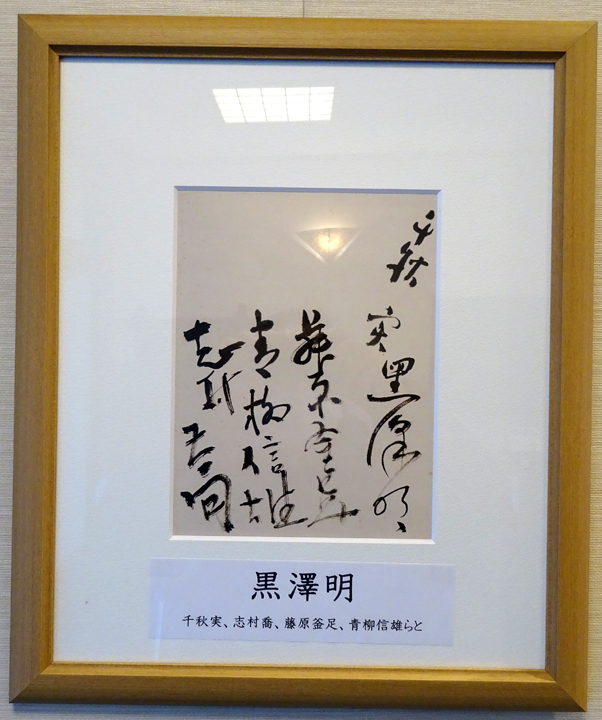 千秋実
黒澤明
藤原釜足
青柳信雄
志村喬
黒澤明
千秋実、志村喬、藤原釜足、青柳信雄らと